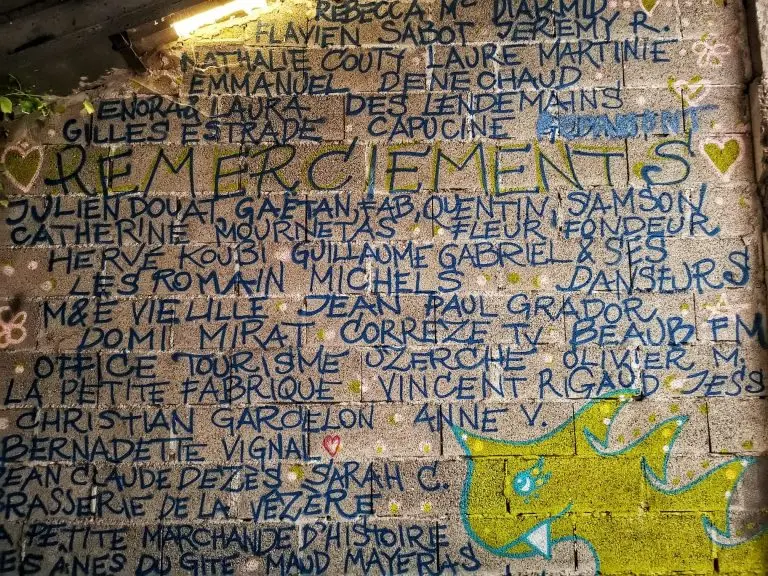 REBECCA Mc DIARMID
FLAVIEN SABOT JEREMY R.
NATHALIE COUTY LAURE MARTINIE
EMMANUEL DENECHAUD
ENORA LAURA DES LENDEMAINS
GILLES ESTRADE CAPUCINE
REMERCIEMENTS
JULIEN DOUAT, GAETAN, FAB, QUENTIN, SAMSON
CATHERINE MOURNETAS FLEUR, FONDEUR
HERVE KOUBI GUILLAUME GABRIEL & SES
LES ROMAIN MICHELS DANSEURS
M&E VIELLE JEAN PAUL GRADOR
DOMI MIRAT CORREZE TV BEAUB FM
OFFICE TOURISME UZERCHE OLIVIER M.
LA PETITE FABRIQUE VINCENT RIGAUD JESS
CHRISTIAN GARDELON ANNE V.
BERNADETTE VIGNAL
JEAN CLAUDE DEZES SARAH C.
BRASSERIE DE LA VÉZÈRE
LA PETITE MARCHANDE D'HISTOIRE
LES ÂNES DU GITE MAUD MAYERAS